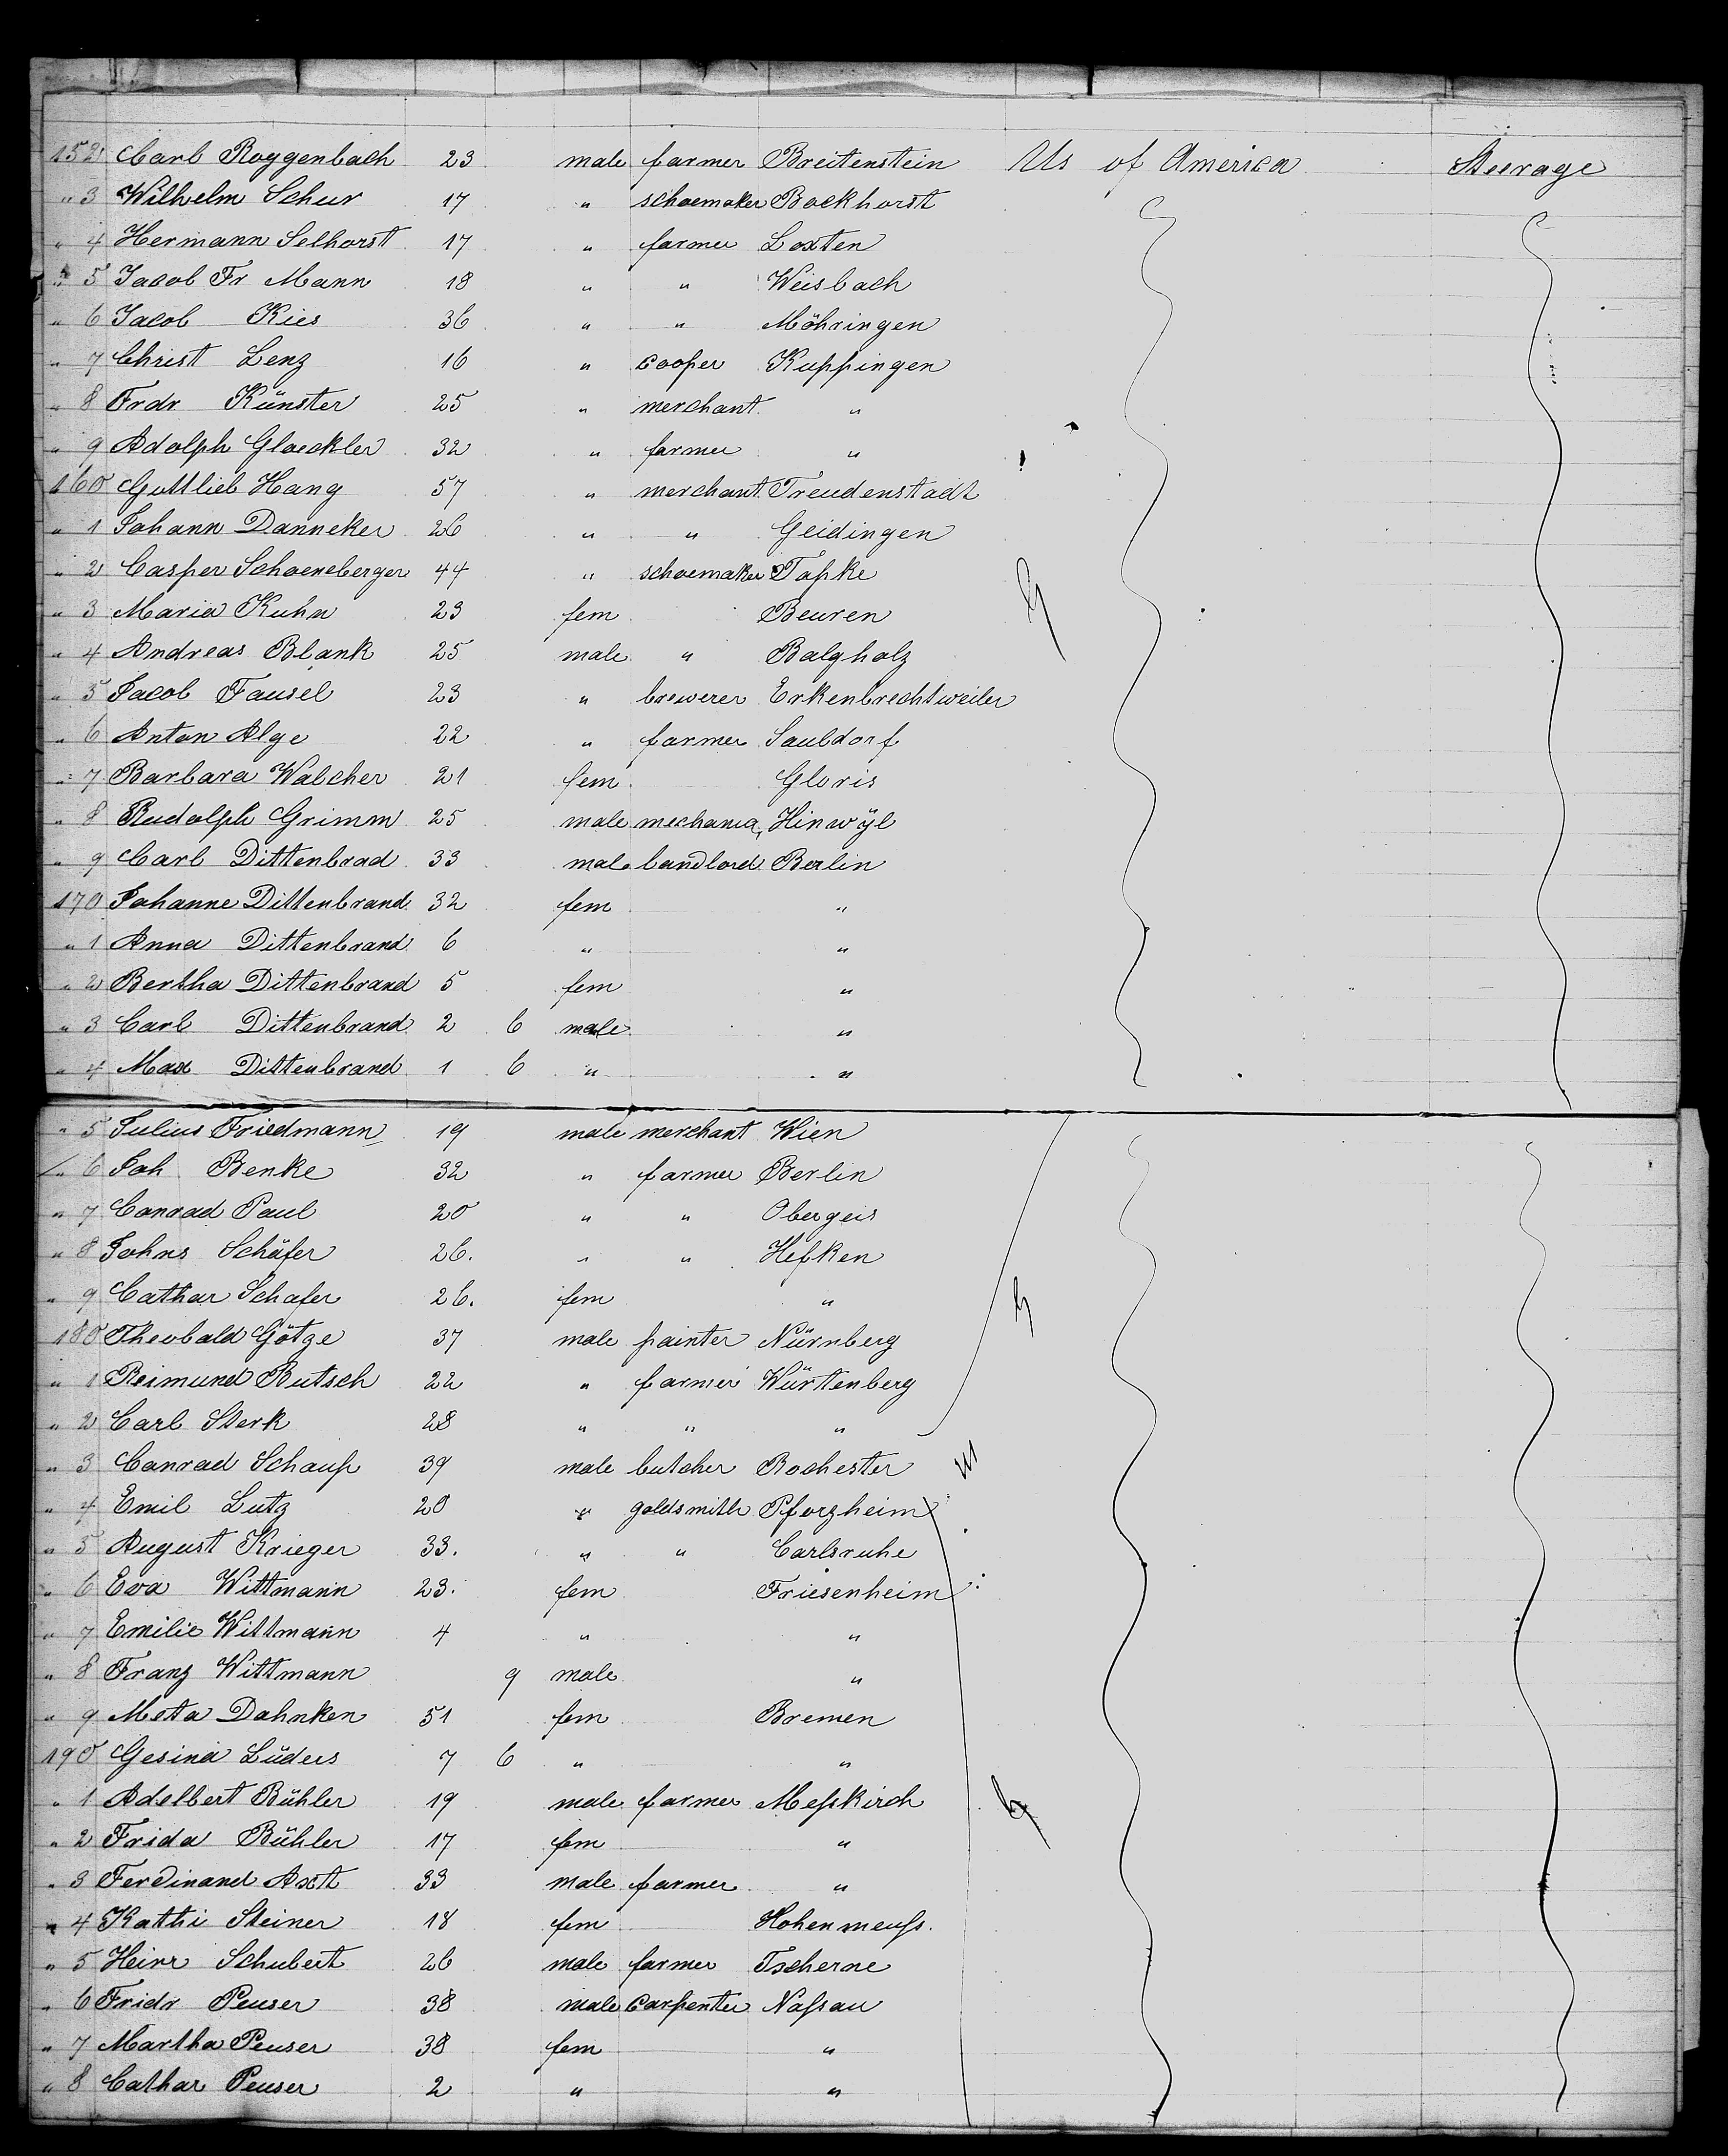 152 Carl Roggenbach 23 male farmer Breitenstein Us of America Steerage
" 3 Wilhelm Schur 17 " schoemaker Bockhorst
" 4 Hermann Selhorst 17 " farmer Loxten
" 5 Jacob Fr Mann 18 " " Weisbach
" 6 Jacob Kies 36 " " Möhringen
" 7 Christ Lenz 16 " cooper Kuppingen
" 8 Frdr Künster 25 " merchant "
" 9 Adolph Gloeckler 32 " farmer "
160 Gottlieb Hang 57 " merchant Freudenstadt
" 1 Johann Danneker 26 " " Geidingen
" 2 Casper Schoeneberger 44 " schoemaker Tapke
" 3 Maria Kuhn 23 fem Beuren
" 4 Andreas Blank 25 male " Balgholz
" 5 Jacob Fausel 23 " brewerer Erkenbrechtweiler
" 6 Anton Alge 22 " farmer Sauldorf
" 7 Barbara Walcher 21 fem Gloris
" 8 Rudolph Grimm 25 male mechanic Hinwÿl
" 9 Carl Dittenbrad 33 male landlord Berlin
170 Johanne Dittenbrand 32 fem "
" 1 Anna Dittenbrand 6 " "
" 2 Bertha Dittenbrand 5 fem "
" 3 Carl Dittenbrand 2 6 male "
" 4 Max Dittenbrand 1 6 " "
" 5 Julius Friedmann 19 male merchant Wien
" 6 Joh Benke 32 " farmer Berlin
" 7 Conrad Paul 20 " " Obergeis
" 8 Johns Schäfer 26. " " Hefken
" 9 Cathar Schafer 26. fem "
180 Theobald Götze 37 male painter Nürnberg
" 1 Reimund Butsch 22 " farmer Würtenberg
" 2 Carl Sterk 28 " " "
" 3 Conrad Schaup 39 male butcher Rochester
" 4 Emil Lutz 20 " goldsmith Pforzheim
" 5 August Krieger 33. " " Carlsruhe
" 6 Eva Wittmann 23. fem Friesenheim
" 7 Emilie Wittmann 4 " "
" 8 Franz Wittmann 9 male "
" 9 Meta Dahnken 51 fem Bremen
190 Gesina Lüders 7 6 " "
" 1 Adelbert Bühler 19 male farmer Meßkirch
" 2 Frida Bühler 17 fem "
" 3 Ferdinand Axt 33 male farmer "
" 4 Kathi Steiner 18 fem Hohenmeuß.
" 5 Heinr Schubert 26 male farmer Tscherne
" 6 Fridr Peuser 38 male Carpenter Naßau
" 7 Martha Peuser 38 fem "
" 8 Cathar Peuser 2 " "